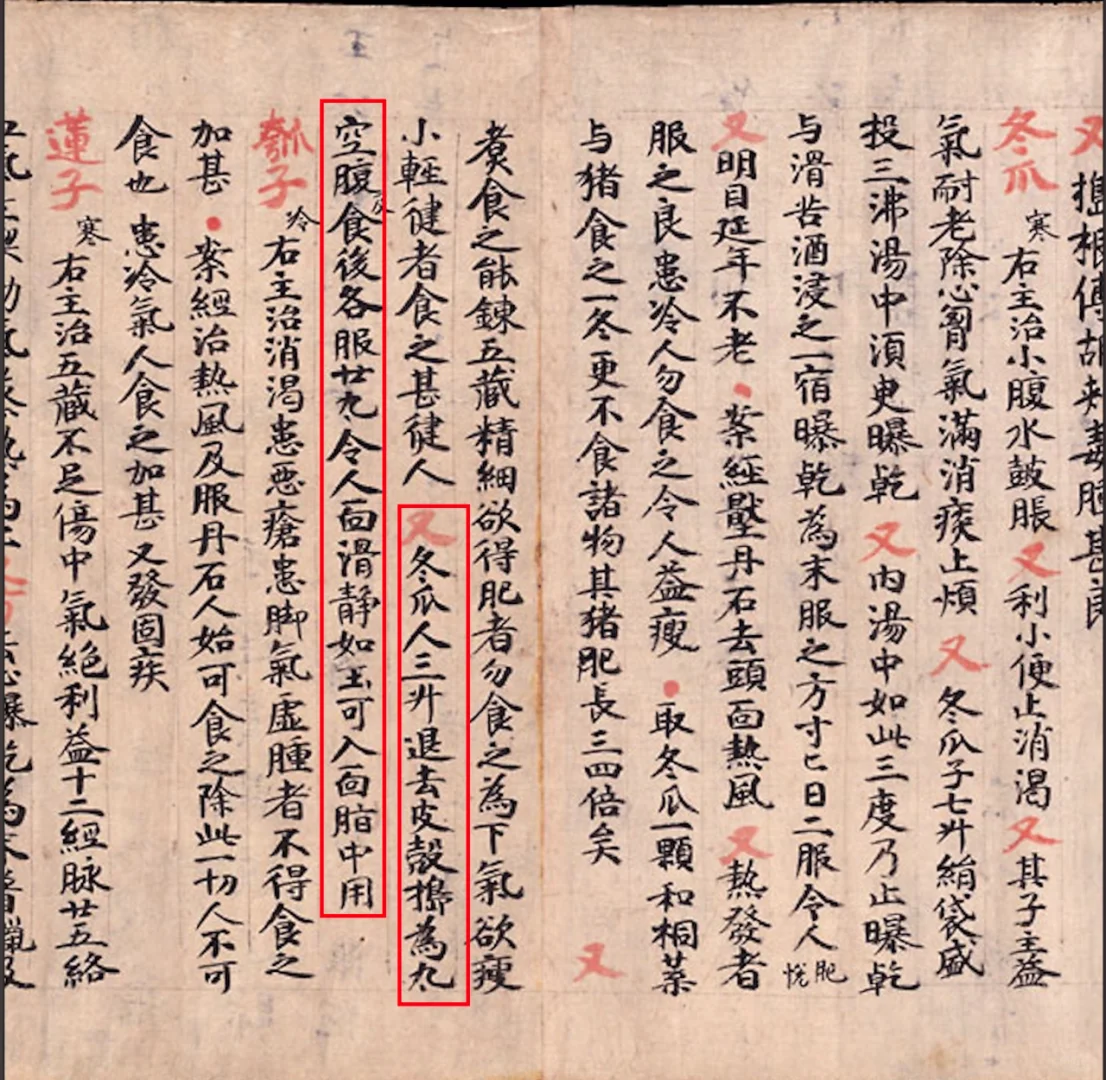 又搗根傅胡刺毒腫甚良
冬瓜寒右主治小腹水鼓脹又利小便止消渴又其子主益
氣耐老除心胷氣滿消痰止煩又冬瓜子七升絹袋盛
投三沸湯中湏臾曝乾又內湯中如此三度乃止曝乾
与清苦酒浸之一宿曝乾為末服之方寸匕日二服令人肥悅
又明目延年不老案經壓丹石去頭面熱風又熱發者
服之良患冷人勿食之令人益瘦取冬瓜一顆和桐葉
与猪食之一冬更不食諸物其猪肥長三四倍矣又
煑食之能鍊五藏精細欲得肥者勿食之為下氣欲瘦
小輕健者食之甚健人又冬瓜人三升退去皮殼擣為丸
空腹及食後各服廿丸令人面滑静如玉可入面脂中用
瓠子冷右主治消渴患惡瘡患脚氣虛腫者不得食之
加甚案經治熱風及服丹石人始可食之除此一切人不可
食也患冷氣人食之加甚又發固疾
蓮子寒右主治五藏不足傷中氣絕利益十二經脉廿五絡